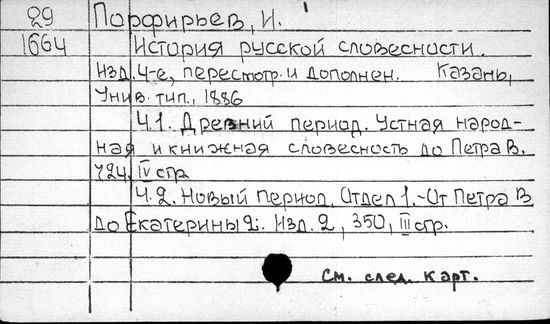 29 Порфирьев, И.
1664 История русской словесности.
Изд. 4-е, пересмотр. и дополнен. Казань,
Унив. тип., 1886
Ч.1. Древний период. Устная народ-
ная и книжная словесность до Петра В.
724, IV стр.
Ч.2. Новый период. Отдел 1.-От Петра В
до Екатерины 2. Изд. 2, 350, III стр.
См. след. карт.